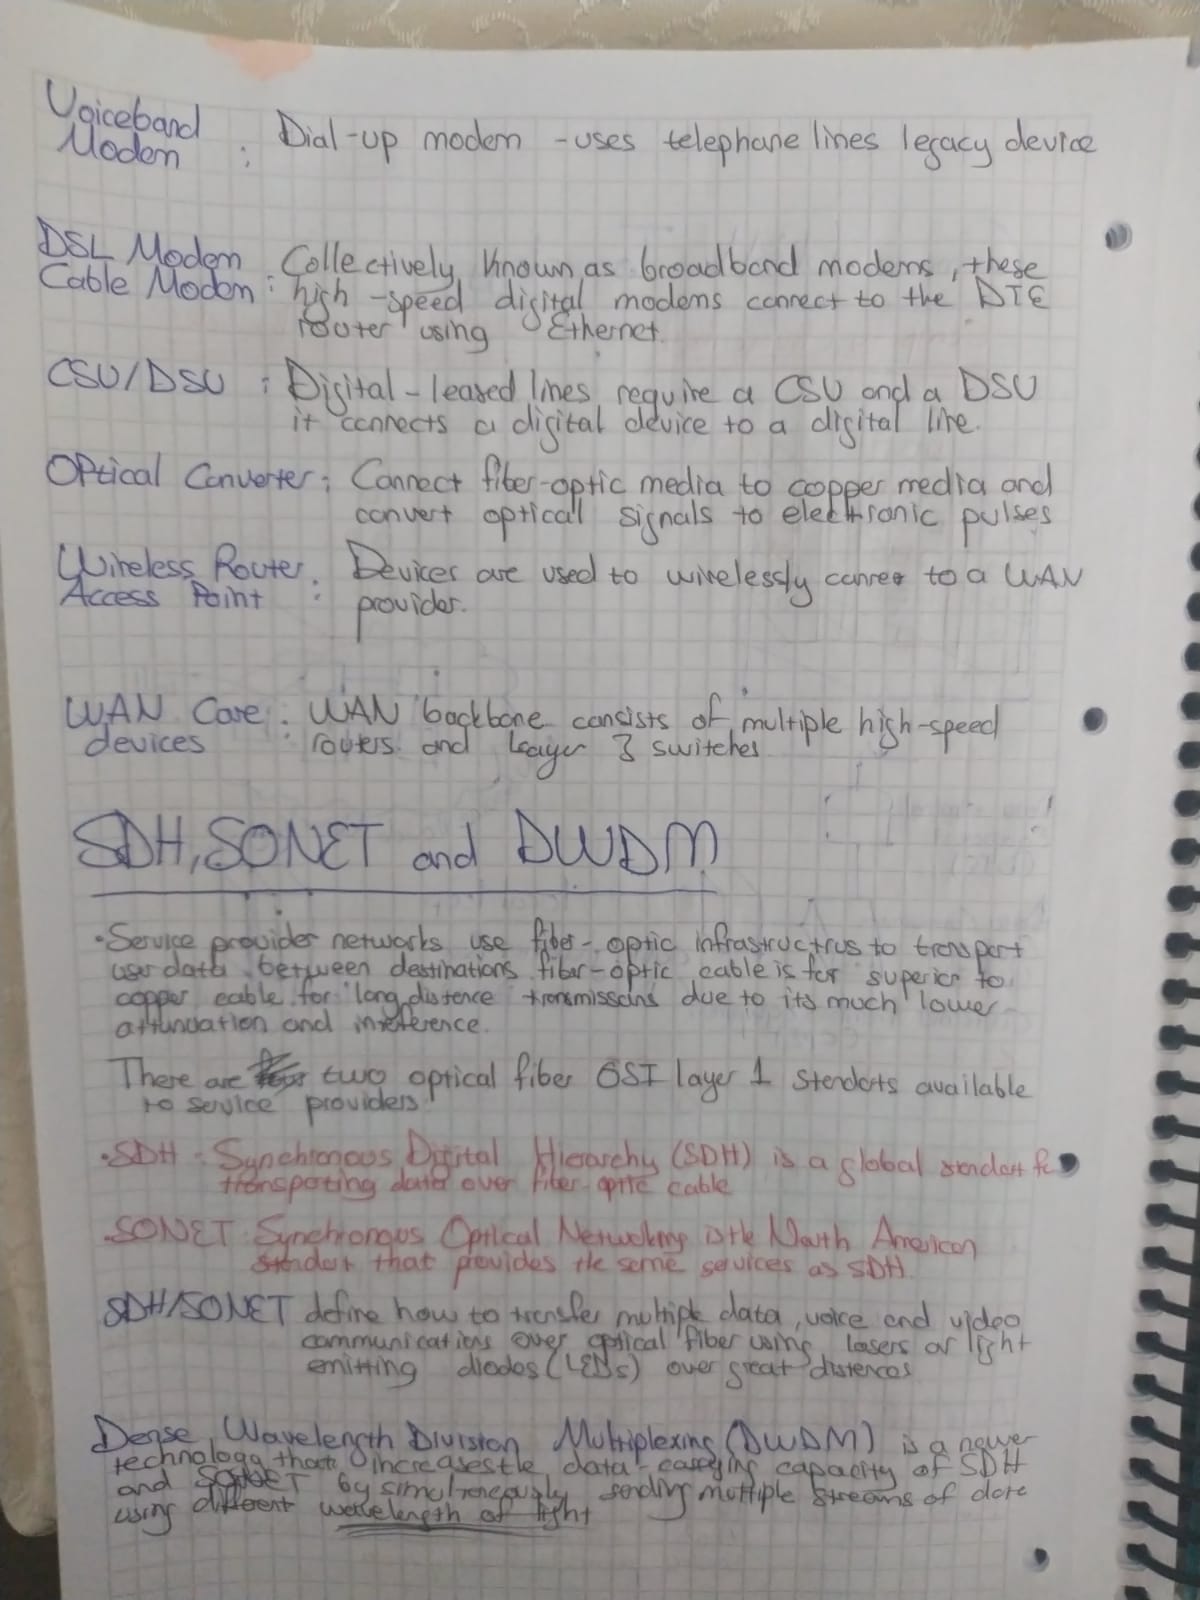 Voiceband
Modem : Dial-up modem - uses telephone lines legacy device
DSL Modem
Cable Modem : Collectively known as broadband modems, these
high-speed digital modems connect to the DTE
router using Ethernet.
CSU/DSU : Digital-leased lines require a CSU and a DSU
it connects a digital device to a digital line.
Optical Converter : Connect fiber-optic media to copper media and
convert optical signals to electronic pulses
Wireless Router
Access Point : Devices are used to wirelessly connet to a WAN
provider.
WAN Core
devices : WAN backbone consists of multiple high-speed
routers and Layer 3 switches
SDH, SONET and DWDM
• Service provider networks use fiber-optic infrastructrus to transport
user data between destinations fiber-optic cable is far superior to
copper cable for long distence transmissoins due to its much lower
attunuation and intreference.
There are two optical fiber OSI layer 1 stendarts available
to service providers
• SDH - Synchronous Digital Hierarchy (SDH) is a global stendart for
transporting data over fiber-optic cable
• SONET Synchronous Optical Networking is the North American
stendart that provides the same services as SDH.
SDH/SONET define how to transfer multiple data, voice and video
communications over optical fiber using lasers or light
emitting diodes (LEDs) over great distences
Dense Wavelength Division Multiplexing (DWDM) is a newer
technology that increases the data-carrying capacity of SDH
and SONET by simultreneously sending multiple streams of data
using different wavelength of light